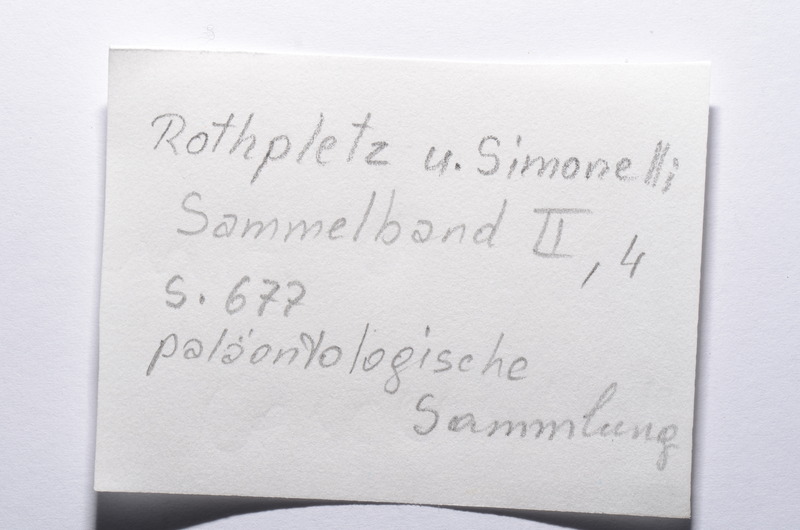 Rothpletz u. Simonelli
Sammelband II, 4
S. 677
paläontologische
Sammlung